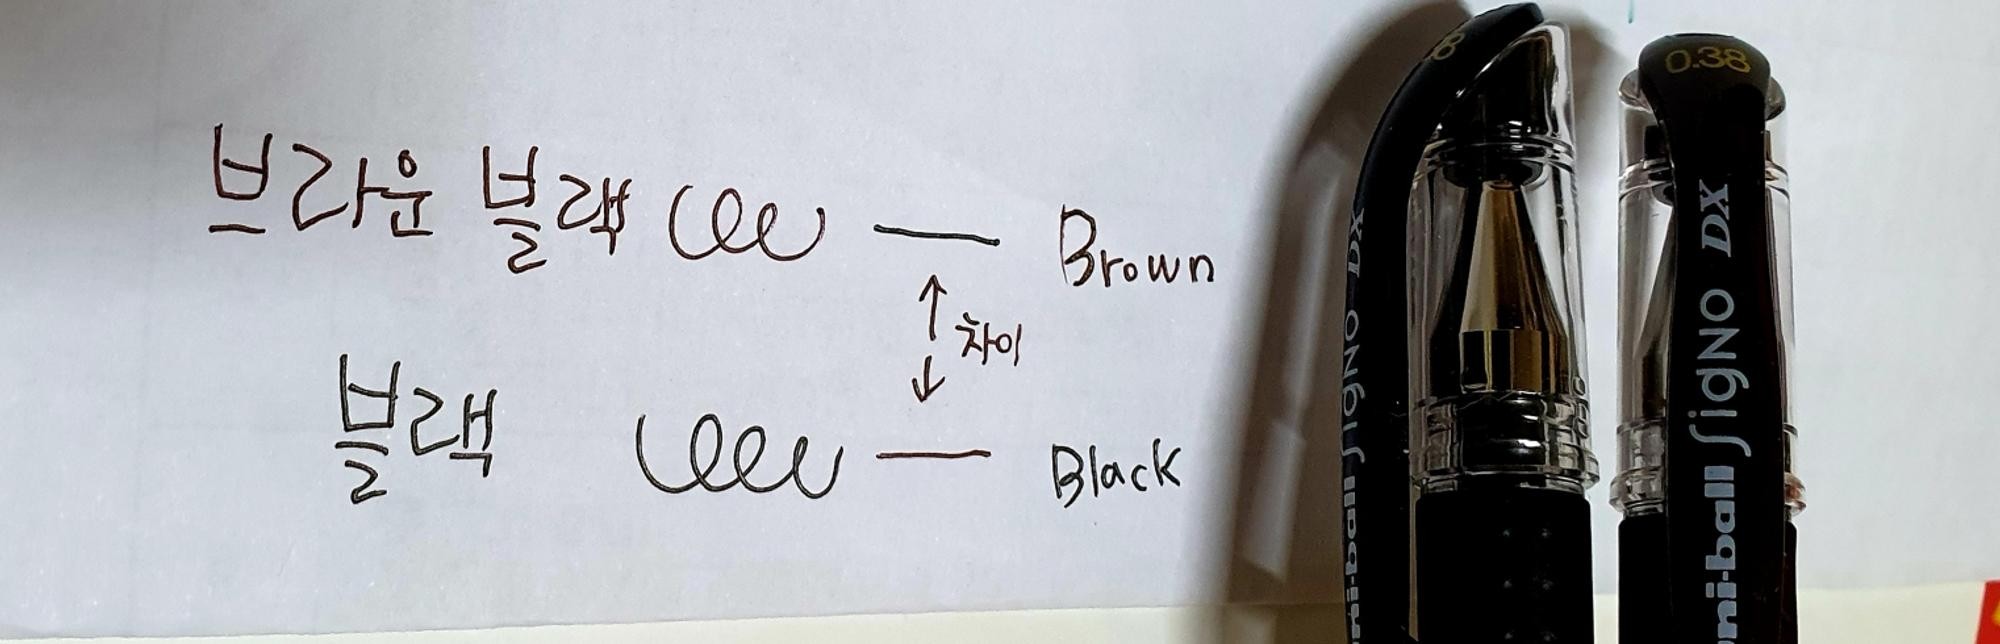 브라운 블랙 Brown
차이
블랙 Black
8
DX
SIGNO
uni-ball
0.38
DX
SIGNO
uni-ball